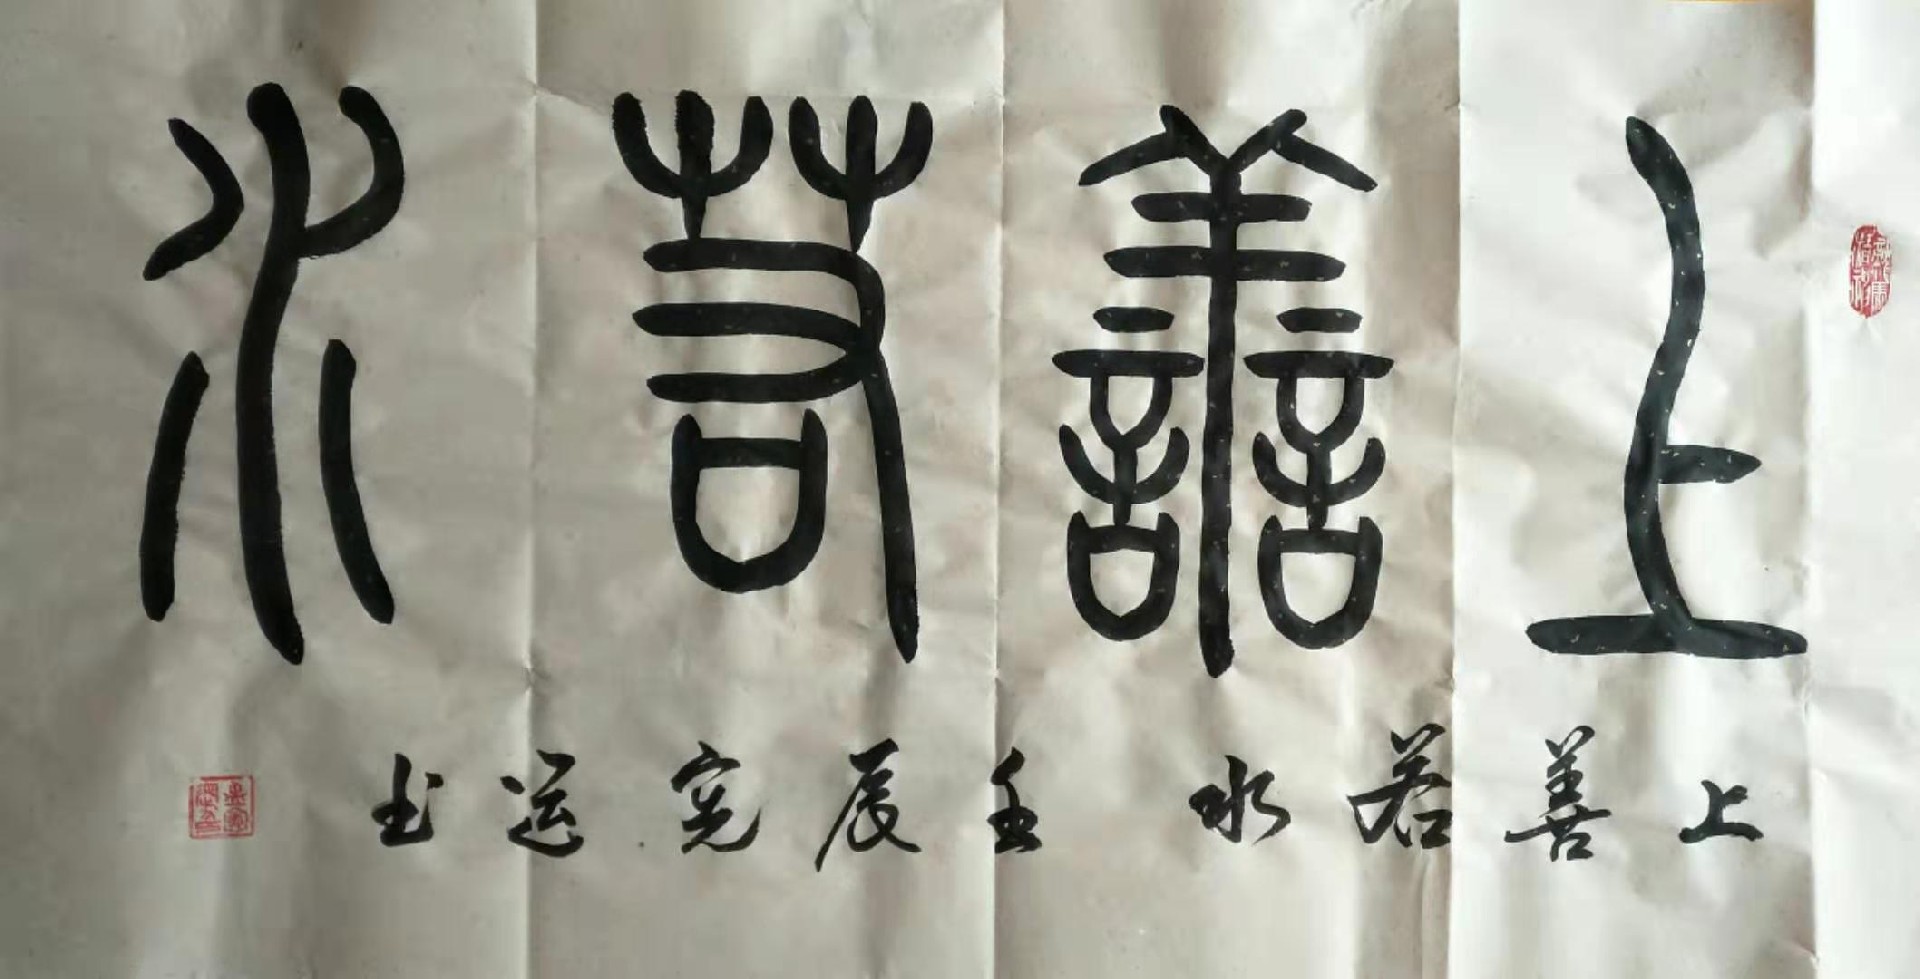 上善若水
上善若水 壬辰宪运书